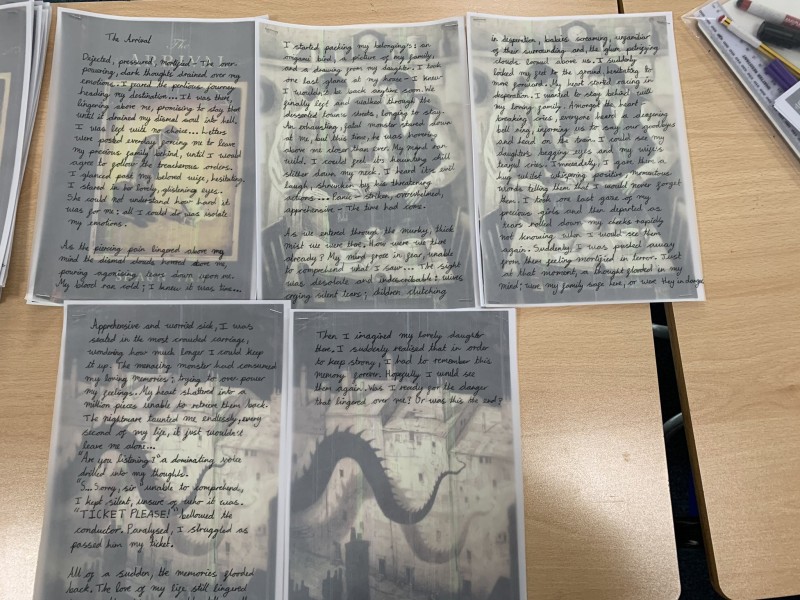 The Arrival
The
Dejected, pressured, mortified - The over-
powering, dark thoughts drained over my
emotions. I feared the perilous journey
heading my destination... It was there,
lingering above me, promising to stay there
until it drained my dismal soul into hell.
I was left with no choice... Letters
were posted everyday forcing me to leave
my precious family behind, until I would
agree to follow the treacherous orders.
I glanced past my beloved wife, hesitating.
I stared in her lovely, glistening eyes.
She could not understand how hard it
was for me: all I could do was isolate
my emotions.
As the piercing pain lingered above my
mind the dismal clouds hovered above me,
pouring agonising tears down upon me.
My blood ran cold; I knew it was time...
I started packing my belongings: an
origami bird, a picture of my family,
and a drawing from my daughter. I took
one last glance at my house - I knew
I wouldn't be back anytime soon. We
finally left and walked through the
dessorted towns streets, longing to stay.
An exhausting, fatal monster stared down
at me, but this time, he was hovering
above me closer than ever. My mind ran
wild. I could feel its haunting chill
slither down my neck. I heard its evil
laugh, shrunken by his threatening
actions.... Panic-striken, overwhelmed,
apprehensive - The time had come.
As we entered through the murky, thick
mist we were there. How were we there
already? My mind froze in fear, unable to
comprehend what I saw... The sight
was desolate and undescribable: wives
crying silent tears; children clutching
in desperation, babies screaming, unfamiliar
of their surrounding and, the glum petrifying
clouds loomed above us. I suddenly
locked my feet to the ground, hesitating to
move forward. My heart started racing in
desperation. I wanted to stay behind with
my loving family. Amongst the heart-
breaking cries, everyone heard a deafening
bell ring, informing us to say our goodbyes
and head on the train. I could see my
daughters begging eyes and my wifes
tinged cries. Immeadietly, I gave them a
hug whilst whispering positive, momentous
words telling them that I would never forget
them. I took one last gaze of my
precious girls and then departed as
tears rolled down my cheeks rapidly
not knowing when I would see them
again. Suddenly, I was pushed away
from them feeling mortified in terror. Just
at that moment, a thought flooded in my
mind; were my family safe here, or were they in danger
Apprehensive and worried sick, I was
seated in the most crowded carriage,
wondering how much longer I could keep
it up. The menacing monster hand consumed
my loving memories; trying to over power
my feelings. My heart shattered into a
million pieces unable to retrieve them back.
The nightmare taunted me endlessly, every
second of my life, it just wouldn't
leave me alone...
"Are you listening?" a dominating voice
drilled into my thoughts.
"S...Sorry, sir" unable to comprehend,
I kept silent, unsure of who it was.
"TICKET PLEASE!" bellowed the
conductor. Paralysed, I struggled as
passed him my ticket.
All of a sudden, the memories flooded
back. The love of my life still lingered
Then I imagined my lovely daughter
there. I suddenly realised that in order
to keep strong, I had to remember this
memory forever. Hopefully I would see
them again. Was I ready for the danger
that lingered over me? Or was this the end?